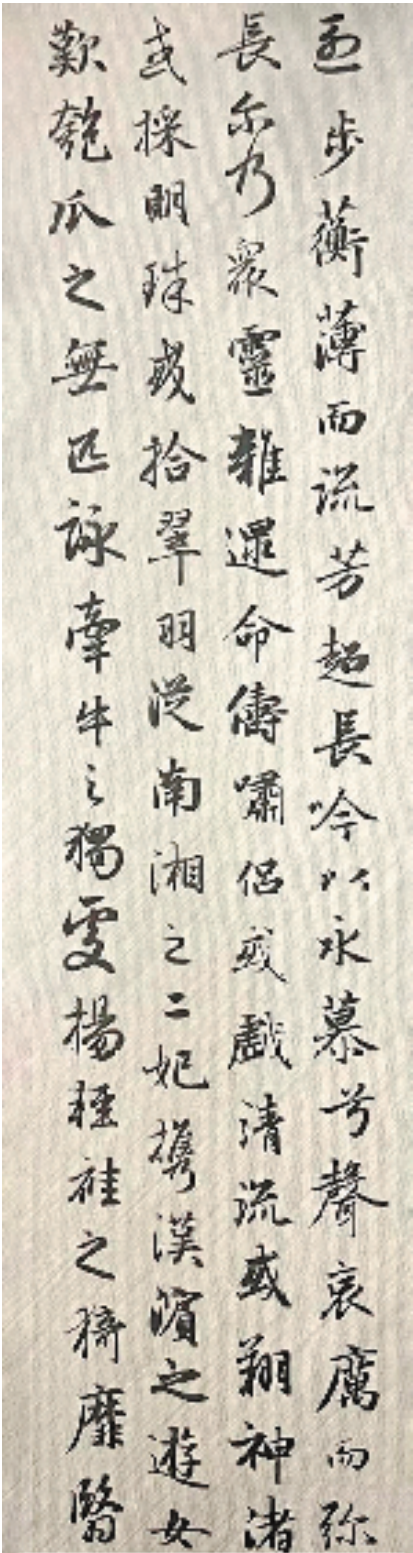 歩蘅薄而流芳超長吟以永慕兮聲哀厲而弥
長尔乃衆靈雜遝命儔嘯侣或戲清流或翔神渚
或採明珠或拾翠羽従南湘之二妃攜漢濱之遊女
歎匏瓜之無匹詠牽牛之獨處揚輕袿之猗靡翳